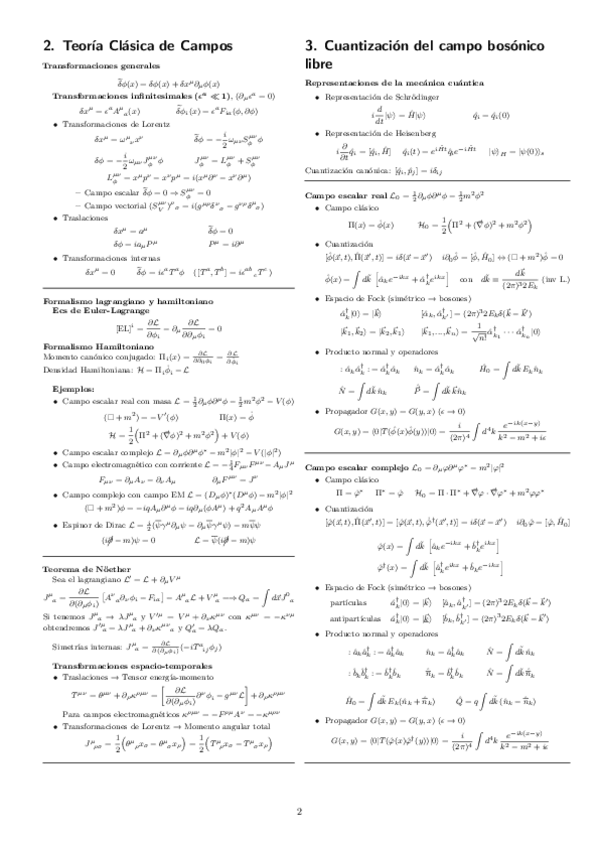 2. Teoría Clásica de Campos
Transformaciones generales
δ̃φ(x) = δφ(x) + δx^μ ∂_μφ(x)
Transformaciones infinitesimales (ε^a ≪ 1), (∂_με^a = 0)
δx^μ = ε^a A^μ_a(x)    δ̃φ_i(x) = ε^a F_ia(φ, ∂φ)
• Transformaciones de Lorentz
δx^μ = ω^μ_ν x^ν    δ̃φ = −i/2 ω_μν S^μν_φ φ
δφ = −i/2 ω_μν J^μν_φ φ    J^μν_φ = L^μν_φ + S^μν_φ
L^μν_φ = x^μ p^ν − x^ν p^μ = i(x^μ ∂^ν − x^ν ∂^μ)
– Campo escalar δ̃φ = 0 → S^μν_φ = 0
– Campo vectorial (S^μν_V)^ρ_σ = i(g^μρ δ^ν_σ − g^νρ δ^μ_σ)
• Traslaciones
δx^μ = a^μ    δ̃φ = 0
δφ = ia_μ P^μ    P^μ = i∂^μ
• Transformaciones internas
δx^μ = 0    δ̃φ = iε^a T^a φ    ([T^a, T^b] = iε^ab_c T^c)
Formalismo lagrangiano y hamiltoniano
Ecs de Euler-Lagrange
[EL]^i = ∂L/∂φ_i − ∂_μ ∂L/∂∂_μφ_i = 0
Formalismo Hamiltoniano
Momento canónico conjugado: Π_i(x) = ∂L/∂∂_0φ_i = ∂L/∂φ̇_i
Densidad Hamiltoniana: H = Π_i φ̇_i − L
Ejemplos:
• Campo escalar real con masa L = ½∂_μφ∂^μφ − ½m²φ² − V(φ)
(□ + m²) = −V′(φ)    Π(x) = φ̇
H = 1/2 (Π² + (∇⃗φ)² + m²φ²) + V(φ)
• Campo escalar complejo L = ∂_μφ∂^μφ* − m²|φ|² − V(|φ|²)
• Campo electromagnético con corriente L = −¼F_μν F^μν − A_μ J^μ
F_μν = ∂_μA_ν − ∂_νA_μ    ∂_μF^μν = J^ν
• Campo complejo con campo EM L = (D_μφ)*(D^μφ) − m²|φ|²
(□ + m²)φ = −iqA_μ∂^μφ − iq∂_μ(φA^μ) + q²A_μA^μφ
• Espinor de Dirac L = i/2 (ψ̄γ^μ∂_μψ − ∂_μψ̄γ^μψ) − mψ̄ψ
(i∂̸ − m)ψ = 0    L = ψ̄(i∂̸ − m)ψ
Teorema de Nöether
Sea el lagrangiano L′ = L + ∂_μV^μ
J^μ_a = ∂L/∂(∂_μφ_i) [A^ν_a ∂_νφ_i − F_ia] − A^μ_a L + V^μ_a ⟹ Q_a = ∫ dx⃗ J^0_a
Si tenemos J^μ_a → λJ^μ_a y V′^μ = V^μ + ∂_νκ^μν con κ^μν = −κ^νμ
obtendremos J′^μ_a = λJ^μ_a + ∂_νκ^μν_a y Q′_a = λQ_a.
Simetrías internas: J^μ_a = ∂L/∂(∂_μφ_i) (−iT^a_ij φ_j)
Transformaciones espacio-temporales
• Traslaciones → Tensor energía-momento
T^μν = θ^μν + ∂_ρκ^ρμν = [∂L/∂(∂_μφ_i) ∂^νφ_i − g^μν L] + ∂_ρκ^ρμν
Para campos electromagnéticos κ^ρμν = −F^ρμ A^ν = −κ^μρν
• Transformaciones de Lorentz → Momento angular total
J^μ_ρσ = 1/2 (θ^μ_ρ x_σ − θ^μ_σ x_ρ) = 1/2 (T^μ_ρ x_σ − T^μ_σ x_ρ)
3. Cuantización del campo bosónico
libre
Representaciones de la mecánica cuántica
• Representación de Schrödinger
i d/dt |ψ⟩ = Ĥ|ψ⟩    q̂_i = q̂_i(0)
• Representación de Heisenberg
i ∂/∂t q̂_i = [q̂_i, Ĥ]    q̂_i(t) = e^{iĤt} q̂_i e^{−iĤt}    |ψ⟩_H = |ψ(0)⟩_s
Cuantización canónica: [q̂_i, p̂_j] = iδ_ij
Campo escalar real L_0 = ½∂_μφ∂^μφ − ½m²φ²
• Campo clásico
Π(x) = φ̇(x)    H_0 = 1/2 (Π² + (∇⃗φ)² + m²φ²)
• Cuantización
[φ̂(x⃗, t), Π̂(x⃗′, t)] = iδ(x⃗ − x⃗′)    i∂_0φ̂ = [φ̂, Ĥ_0] ⇔ (□ + m²)φ̂ = 0
φ̂(x) = ∫ dk̃ [â_k e^{−ikx} + â†_k e^{ikx}]    con    dk̃ ≡ dk⃗/(2π)³2E_k (inv L.)
• Espacio de Fock (simétrico → bosones)
â†_k|0⟩ = |k⃗⟩    [â_k, â†_k′] = (2π)³2E_kδ(k⃗ − k⃗′)
|k⃗_1, k⃗_2⟩ = |k⃗_2, k⃗_1⟩    |k⃗_1, ..., k⃗_n⟩ = 1/√n! â†_k1 · · · â†_kn |0⟩
• Producto normal y operadores
: â_k â†_k : = â†_k â_k    n̂_k = â†_k â_k    Ĥ_0 = ∫ dk̃ E_k n̂_k
N̂ = ∫ dk̃ n̂_k    P̂ = ∫ dk̃ k⃗ n̂_k
• Propagador G(x, y) = G(y, x) (ε → 0)
G(x, y) = ⟨0|T(φ̂(x)φ̂(y))|0⟩ = i/(2π)⁴ ∫ d⁴k e^{−ik(x−y)}/(k² − m² + iε)
Campo escalar complejo L_0 = ∂_μφ∂^μφ* − m²|φ|²
• Campo clásico
Π = φ̇*    Π* = φ̇    H_0 = Π · Π* + ∇⃗φ · ∇⃗φ* + m²φφ*
• Cuantización
[φ̂(x⃗, t), Π̂(x⃗′, t)] = [φ̂(x⃗, t), φ̂†(x⃗′, t)] = iδ(x⃗ − x⃗′)    i∂_0φ = [φ̂, Ĥ_0]
φ̂(x) = ∫ dk̃ [â_k e^{−ikx} + b̂†_k e^{ikx}]
φ̂†(x) = ∫ dk̃ [â†_k e^{ikx} + b̂_k e^{−ikx}]
• Espacio de Fock (simétrico → bosones)
partículas    â†_k|0⟩ = |k⃗⟩    [â_k, â†_k′] = (2π)³2E_kδ(k⃗ − k⃗′)
antipartículas    b̂†_k|0⟩ = |k⃗⟩    [b̂_k, b̂†_k′] = (2π)³2E_kδ(k⃗ − k⃗′)
• Producto normal y operadores
: â_k â†_k : = â†_k â_k    n̂_k = â†_k â_k    N̂ = ∫ dk̃ n̂_k
: b̂_k b̂†_k : = b̂†_k b̂_k    n̄̂_k = b̂†_k b̂_k    N̂ = ∫ dk̃ n̄̂_k
Ĥ_0 = ∫ dk̃ E_k(n̂_k + n̄̂_k)    Q̂ = q ∫ dk̃ (n̂_k − n̄̂_k)
• Propagador G(x, y) = G(y, x) (ε → 0)
G(x, y) = ⟨0|T(φ̂(x)φ̂†(y))|0⟩ = i/(2π)⁴ ∫ d⁴k e^{−ik(x−y)}/(k² − m² + iε)
2